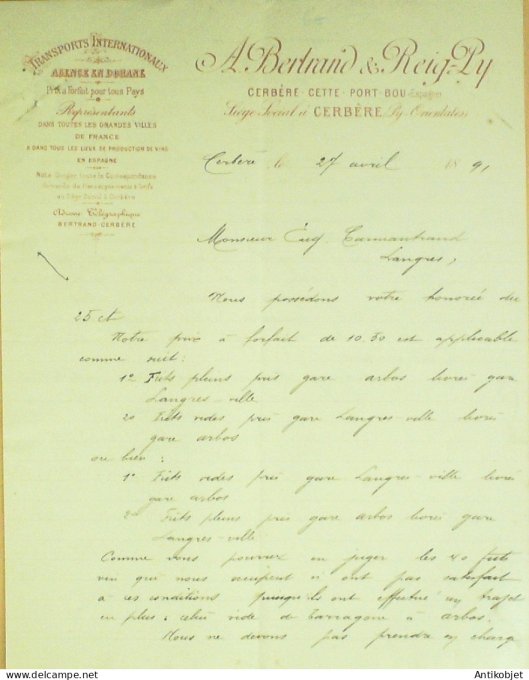 TRANSPORTS INTERNATIONAUX
AGENCE EN DOUANE
Prix à Forfait pour tous Pays
Représentants
DANS TOUTES LES GRANDES VILLES
DE FRANCE
& DANS TOUS LES LIEUX DE PRODUCTION DE VINS
EN ESPAGNE
Adresse Télégraphique
BERTRAND-CERBÈRE
A. Bertrand & Reig-Py
CERBÈRE-CETTE-PORT-BOU (Espagne)
Siège Social à CERBÈRE (Py-Orientales)
Cerbère, le 27 avril 1891
Monsieur Eug. Cormantrand
Langres,
Nous possédons votre honorée du
25 ct
Notre prix à forfait de 10.50 est applicable
comme suit :
1º Fûts pleins pris gare arbos livrés gare
Langres-ville
2º Fûts vides pris gare Langres-ville livrés
gare arbos
ou bien :
1º Fûts vides pris gare Langres-ville livrés
gare arbos
2º Fûts pleins pris gare arbos livrés gare
Langres-ville
Comme vous pourrez en juger les 40 fûts
vin qui nous occupent n'ont pas satisfait
à ces conditions puisqu'ils ont effectué un trajet
en plus : celui vide de Tarragone à arbos.
Nous ne devons pas prendre en charge
delcampe.net